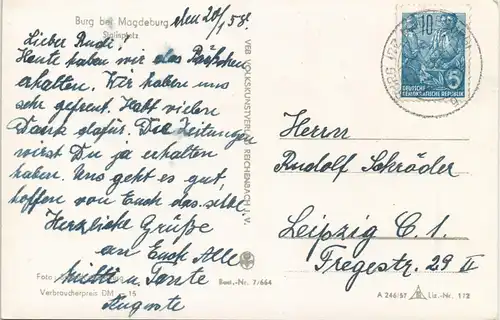 Burg bei Magdeburg
Stalinplatz
den 20/1.58.
Lieber Rudi!
Heute haben wir das Päckchen
erhalten. Wir haben uns
sehr gefreut. Habt vielen
Dank dafür. Die Zeitungen
wirst Du ja erhalten
haben. Uns geht es gut,
hoffen von Euch das selbe.
Herzliche Grüße
an Euch Alle
u. Tante
Auguste
Foto:
Verbraucherpreis DM -.15
Best.-Nr. 7/664
VEB VOLKSKUNSTVERLAG REICHENBACH I. V.
10
DEUTSCHE
DEMOKRATISCHE REPUBLIK
Herrn
Rudolf Schröder
Leipzig C. 1.
Fregestr. 29 II
A 246/57 Liz.-Nr. 172